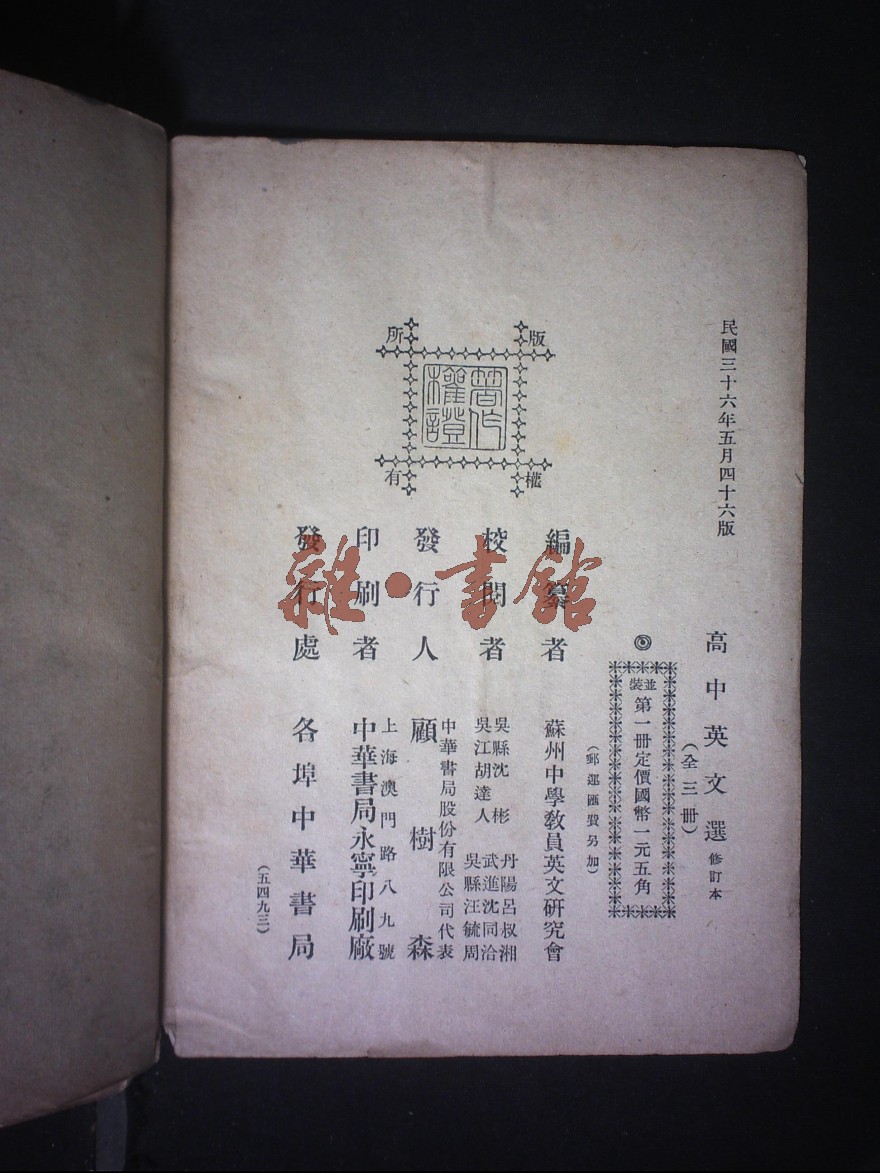 民國三十六年五月四十六版
高中英文選 修訂本
(全三冊)
◎
並裝
第一冊定價國幣一元五角
(郵運匯費另加)
版權所有
著作權證
編纂者 蘇州中學教員英文研究會
校閱者
吳縣沈彬
吳江胡達人
丹陽呂叔湘
武進沈同洽
吳縣汪毓周
發行人
中華書局股份有限公司代表
顧樹森
印刷者
上海澳門路八九號
中華書局永寧印刷廠
發行處 各埠中華書局
(五四九三)
雜·書館